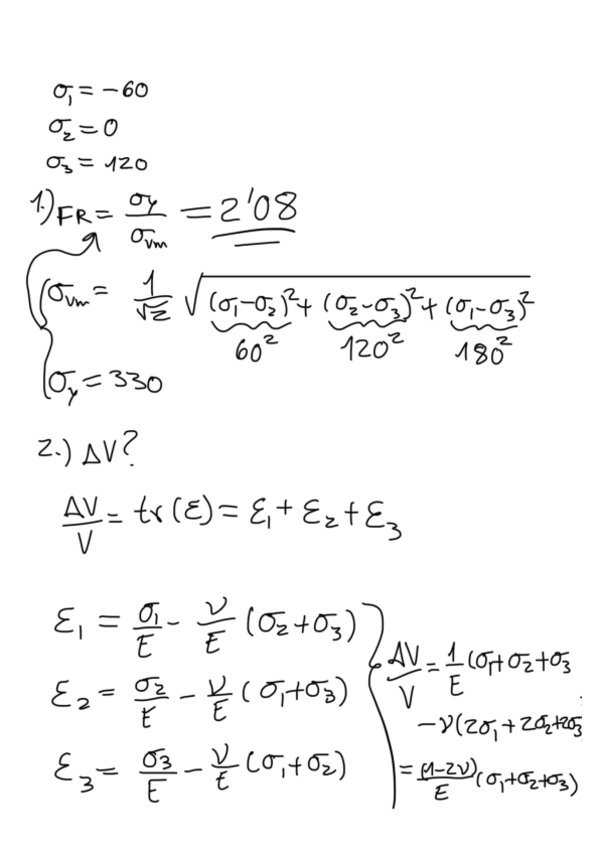 σ₁ = -60
σ₂ = 0
σ₃ = 120
1.) FR = σy/σvm = 2'08
σvm = 1/√2 √((σ₁-σ₂)² + (σ₂-σ₃)² + (σ₁-σ₃)²)
60² 120² 180²
σy = 330
2.) ΔV?
ΔV/V = tr(ε) = ε₁ + ε₂ + ε₃
ε₁ = σ₁/E - ν/E (σ₂+σ₃)
ε₂ = σ₂/E - ν/E (σ₁+σ₃)
ε₃ = σ₃/E - ν/E (σ₁+σ₂)
ΔV/V = 1/E (σ₁+σ₂+σ₃
-ν(2σ₁+2σ₂+2σ₃
= (1-2ν)/E (σ₁+σ₂+σ₃)